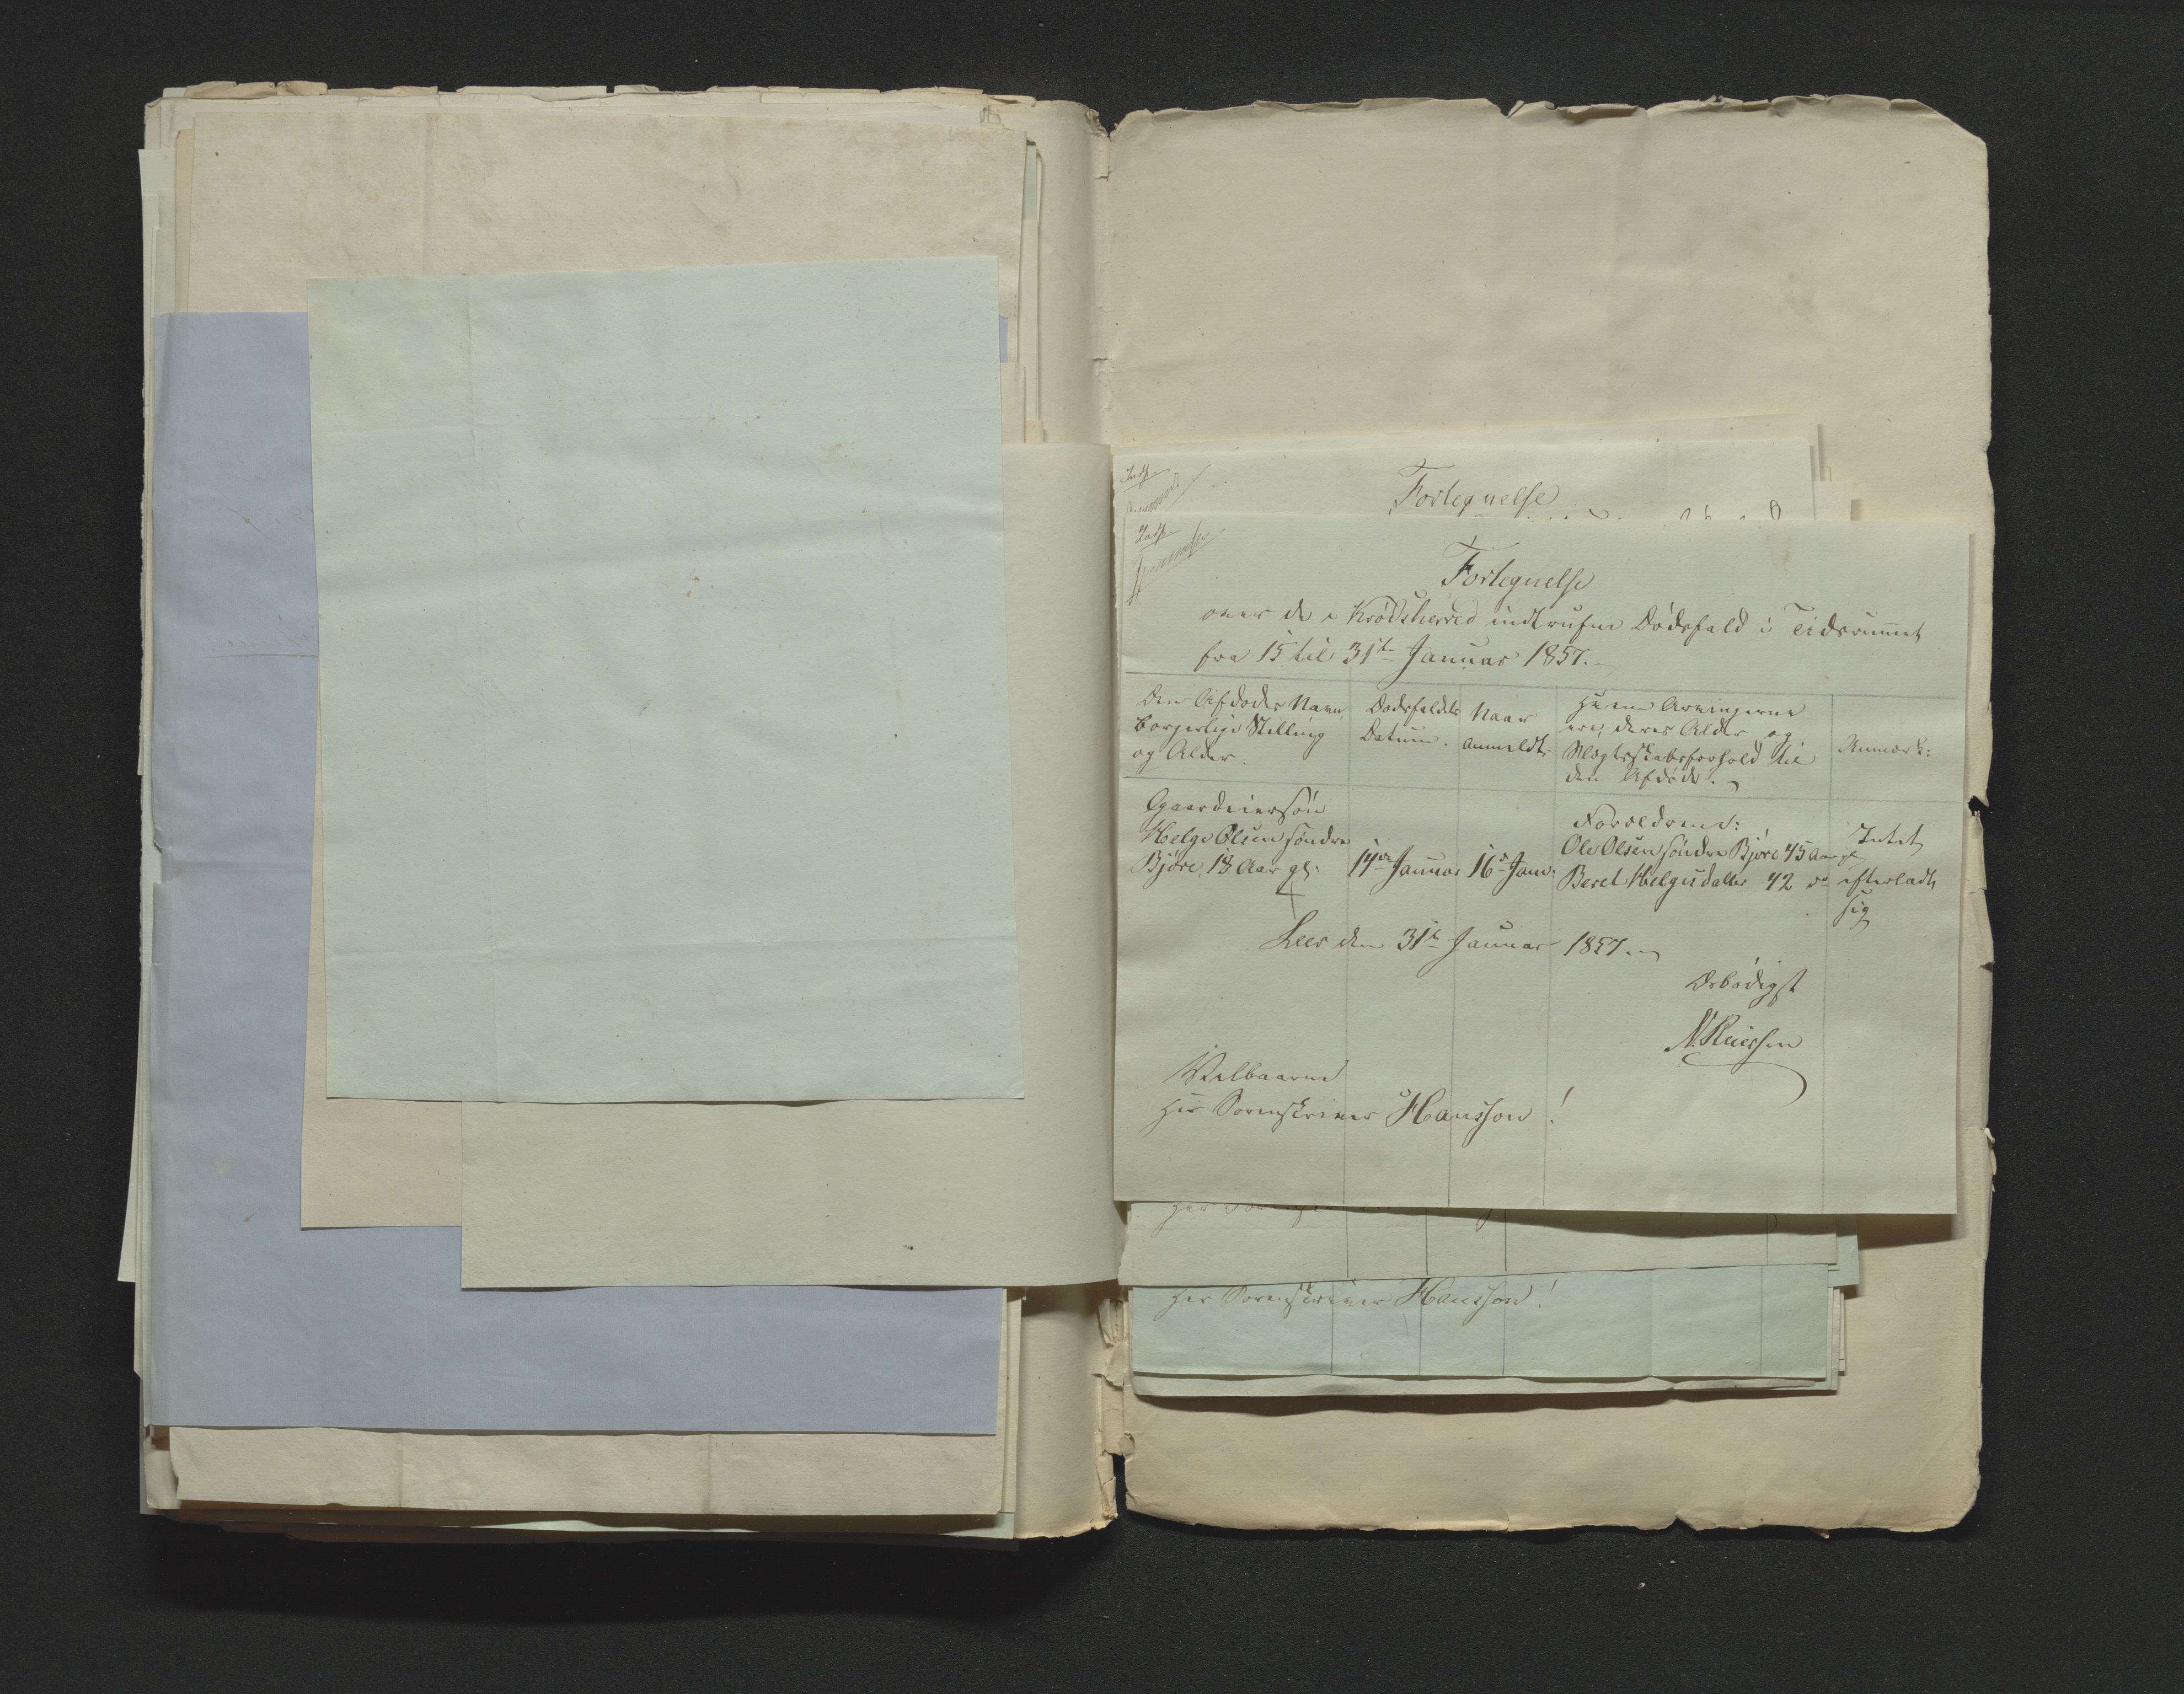 Fortegnelse
Fortegnelse
over de i Krødsherred indtrufne Dødsfald i Tidsrummet
fra 15 til 31te Januar 1857.
Den Afdødes Navn,
borgerlige Stilling
og Alder.
Dødsfaldets
Datum.
Naar
anmeldt.
Hvem Arvingerne
ere, deres Alder og
Slægtskabsforhold til
den Afdøde.
Anmærk:
Gaardeiersøn
Helge Olsen søndre
Bjøre, 18 Aar gl:
14de Januar
16de Janr:
Forældrene:
Ole Olsen søndre Bjøre 45 Aar gl
Beret Helgesdatter 42 do
Intet
efterladt
sig
Leer den 31te Januar 1857.
Ærbødigst
N. Kuiesen
Velbaarne
Hr Sorenskriver Hansson!
Hr Sorenskriver Hansson!